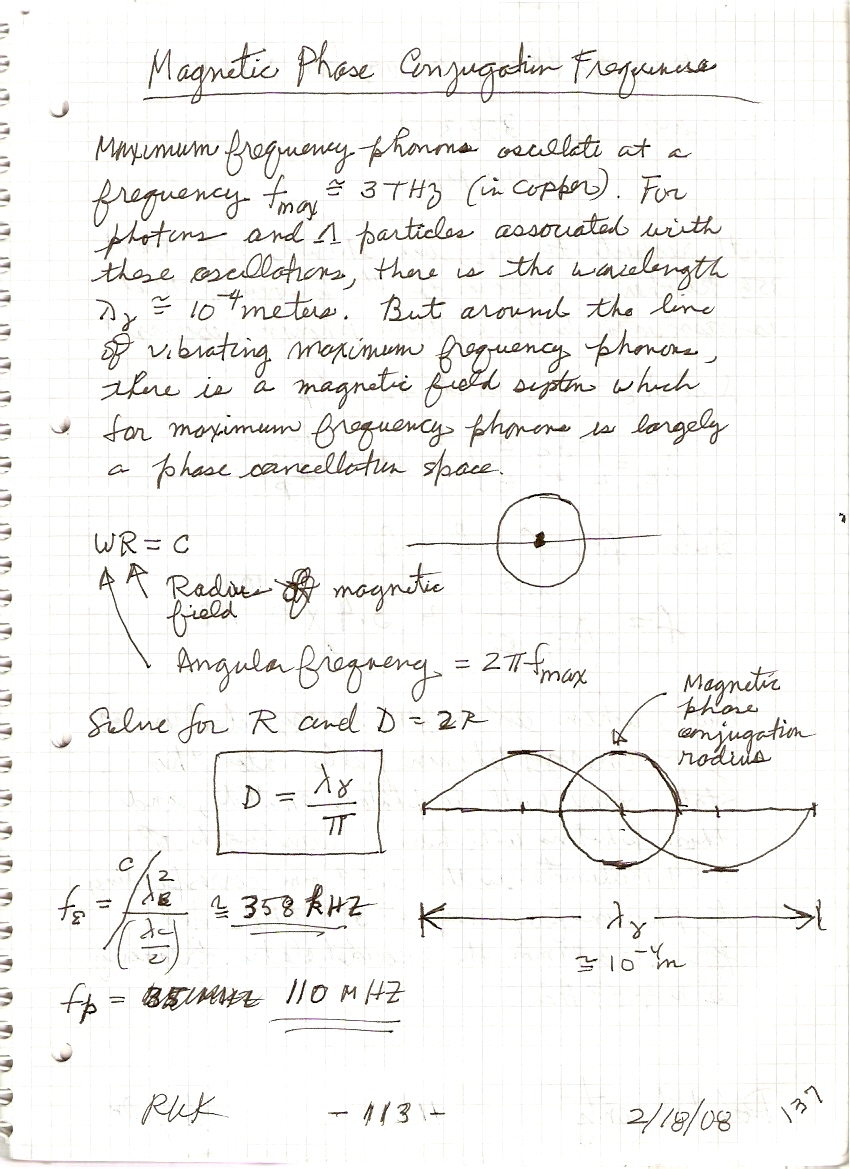 Magnetic Phase Conjugation Frequencies
Maximum frequency phonons oscillate at a
frequency f_max ≅ 3 THz (in copper). For
photons and Λ particles associated with
these oscillations, there is the wavelength
λ_γ ≅ 10⁻⁴ meters. But around the line
of vibrating maximum frequency phonons,
there is a magnetic field system which
for maximum frequency phonons is largely
a phase cancellation space.
WR = C
Radius of magnetic
field
Angular frequency = 2πf_max
Solve for R and D = 2R
Magnetic
phase
conjugation
radius
D = λ_γ / π
f_ε = C / (λ_E² / (λ_c / 2)) ≅ 358 kHZ
λ_γ
≅ 10⁻⁴m
f_p = 110 MHZ
RWK - 113 - 2/18/08 137